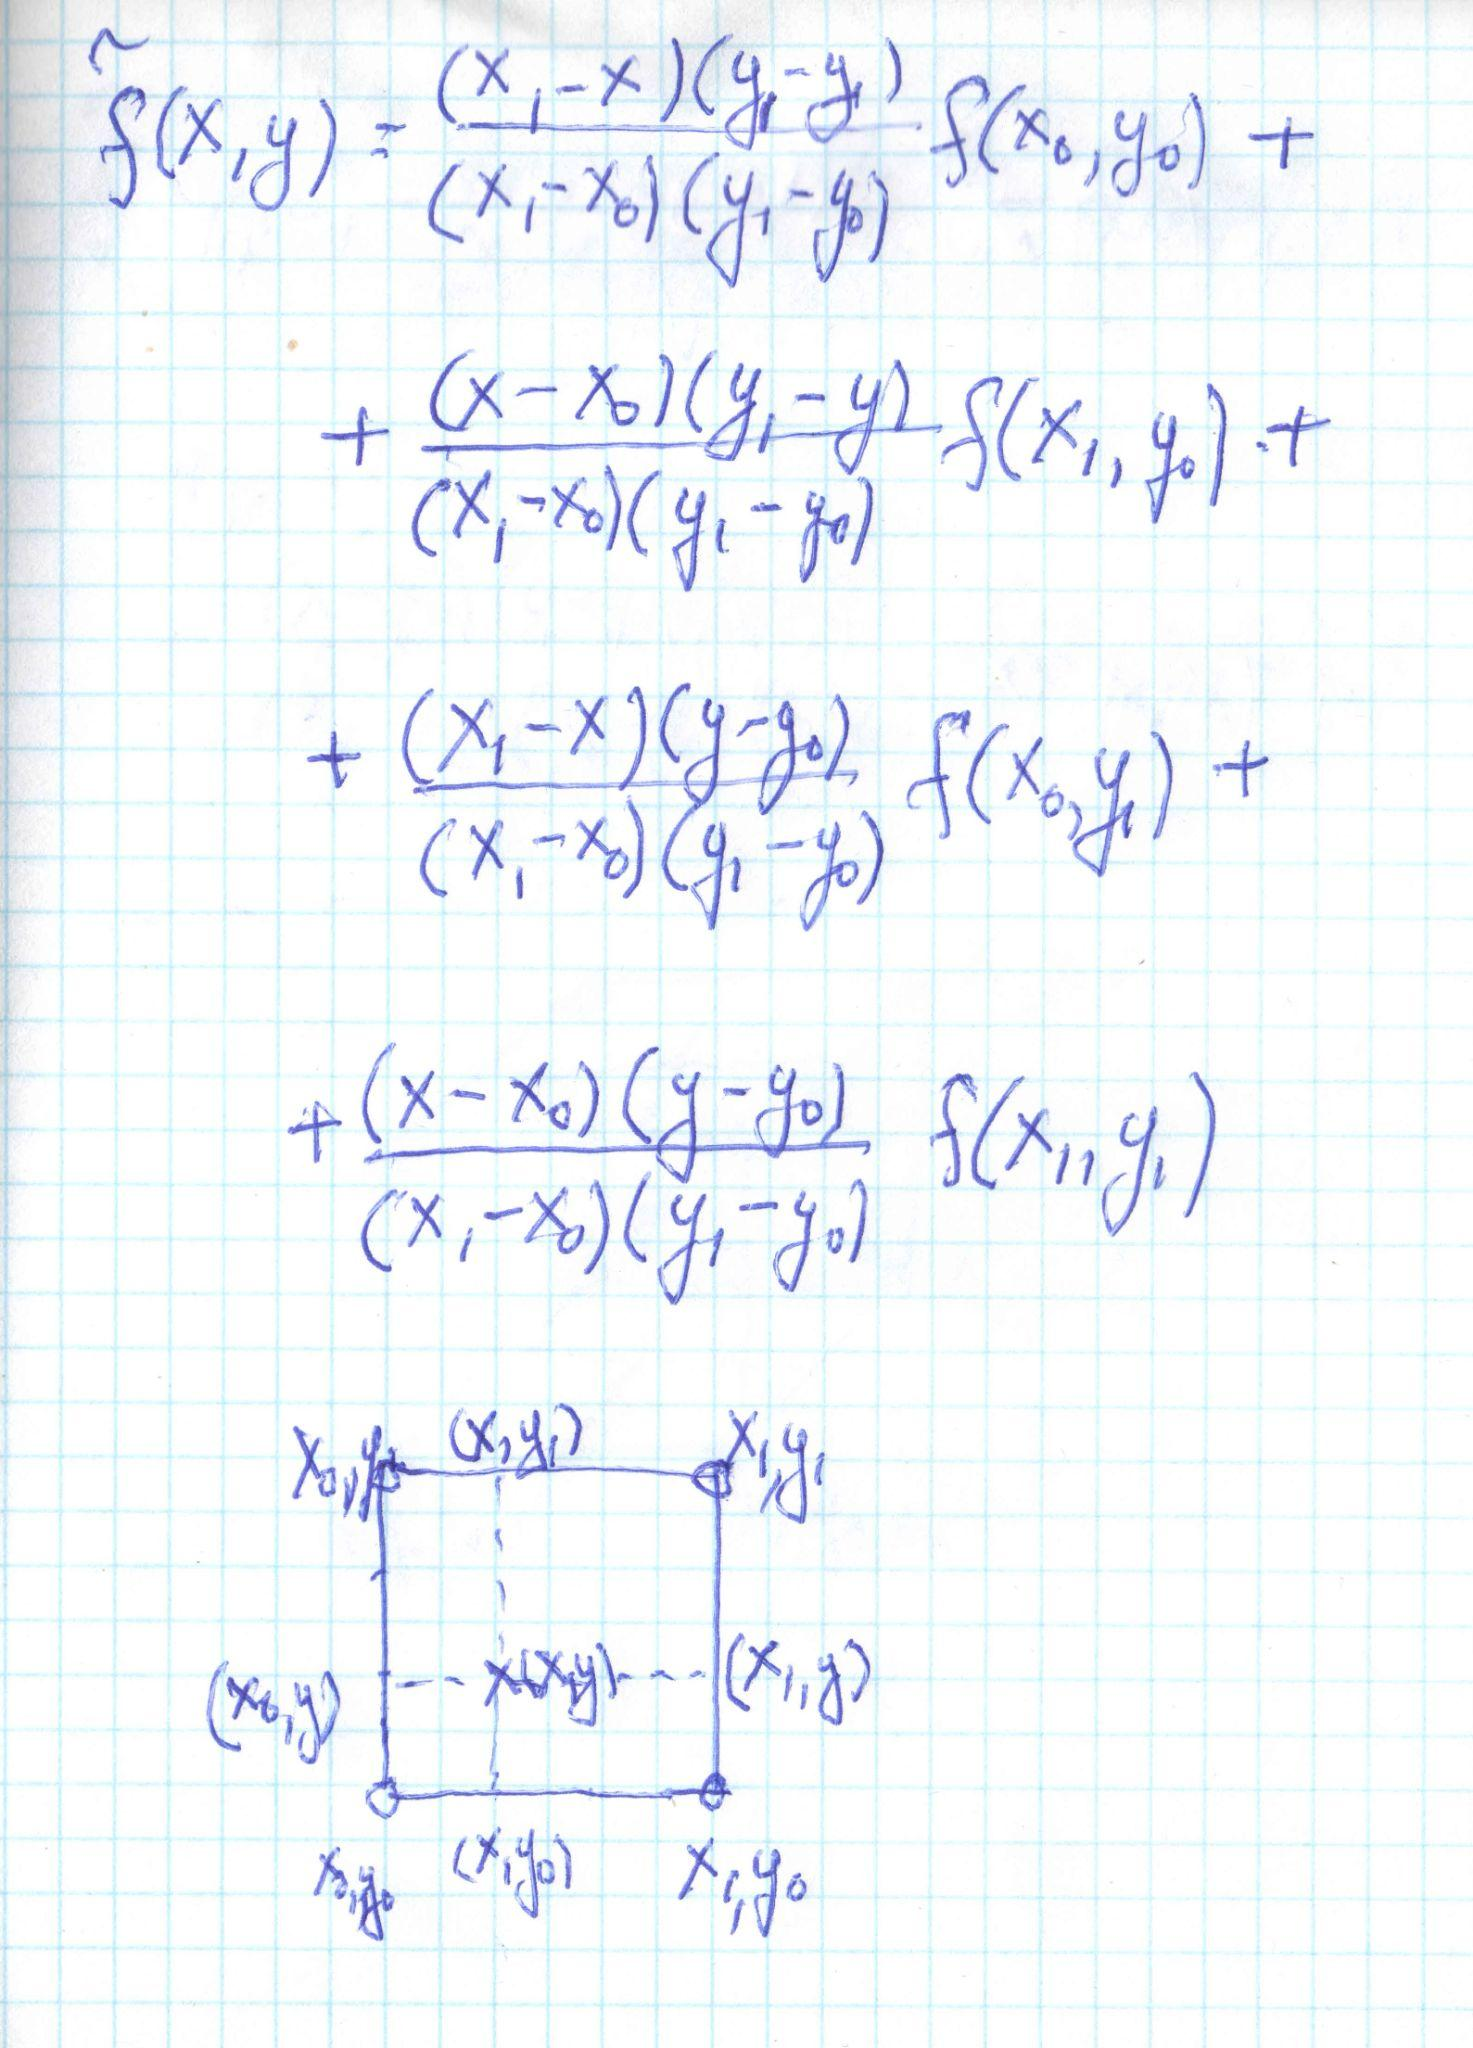 f̃(x,y) = (x₁-x)(y₁-y₁) / (x₁-x₀)(y₁-y₀) f(x₀,y₀) +
+ (x-x₀)(y₁-y) / (x₁-x₀)(y₁-y₀) f(x₁,y₀) +
+ (x₁-x)(y-y₀) / (x₁-x₀)(y₁-y₀) f(x₀,y₁) +
+ (x-x₀)(y-y₀) / (x₁-x₀)(y₁-y₀) f(x₁,y₁)
x₀,y₁ (x,y₁) x₁,y₁
(x₀,y) (x,y) (x₁,y)
x₀,y₀ (x,y₀) x₁,y₀